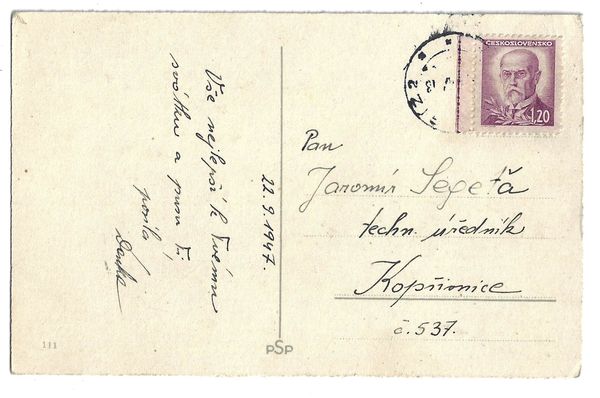 Vše nejlepší k Tvému
svátku a pusu Ti
posílá
22. 9. 1947.
ČESKOSLOVENSKO
1,20
Pan
Jaromír Segeťa
techn. úředník
Kopřivnice
č. 537.
111
PSP